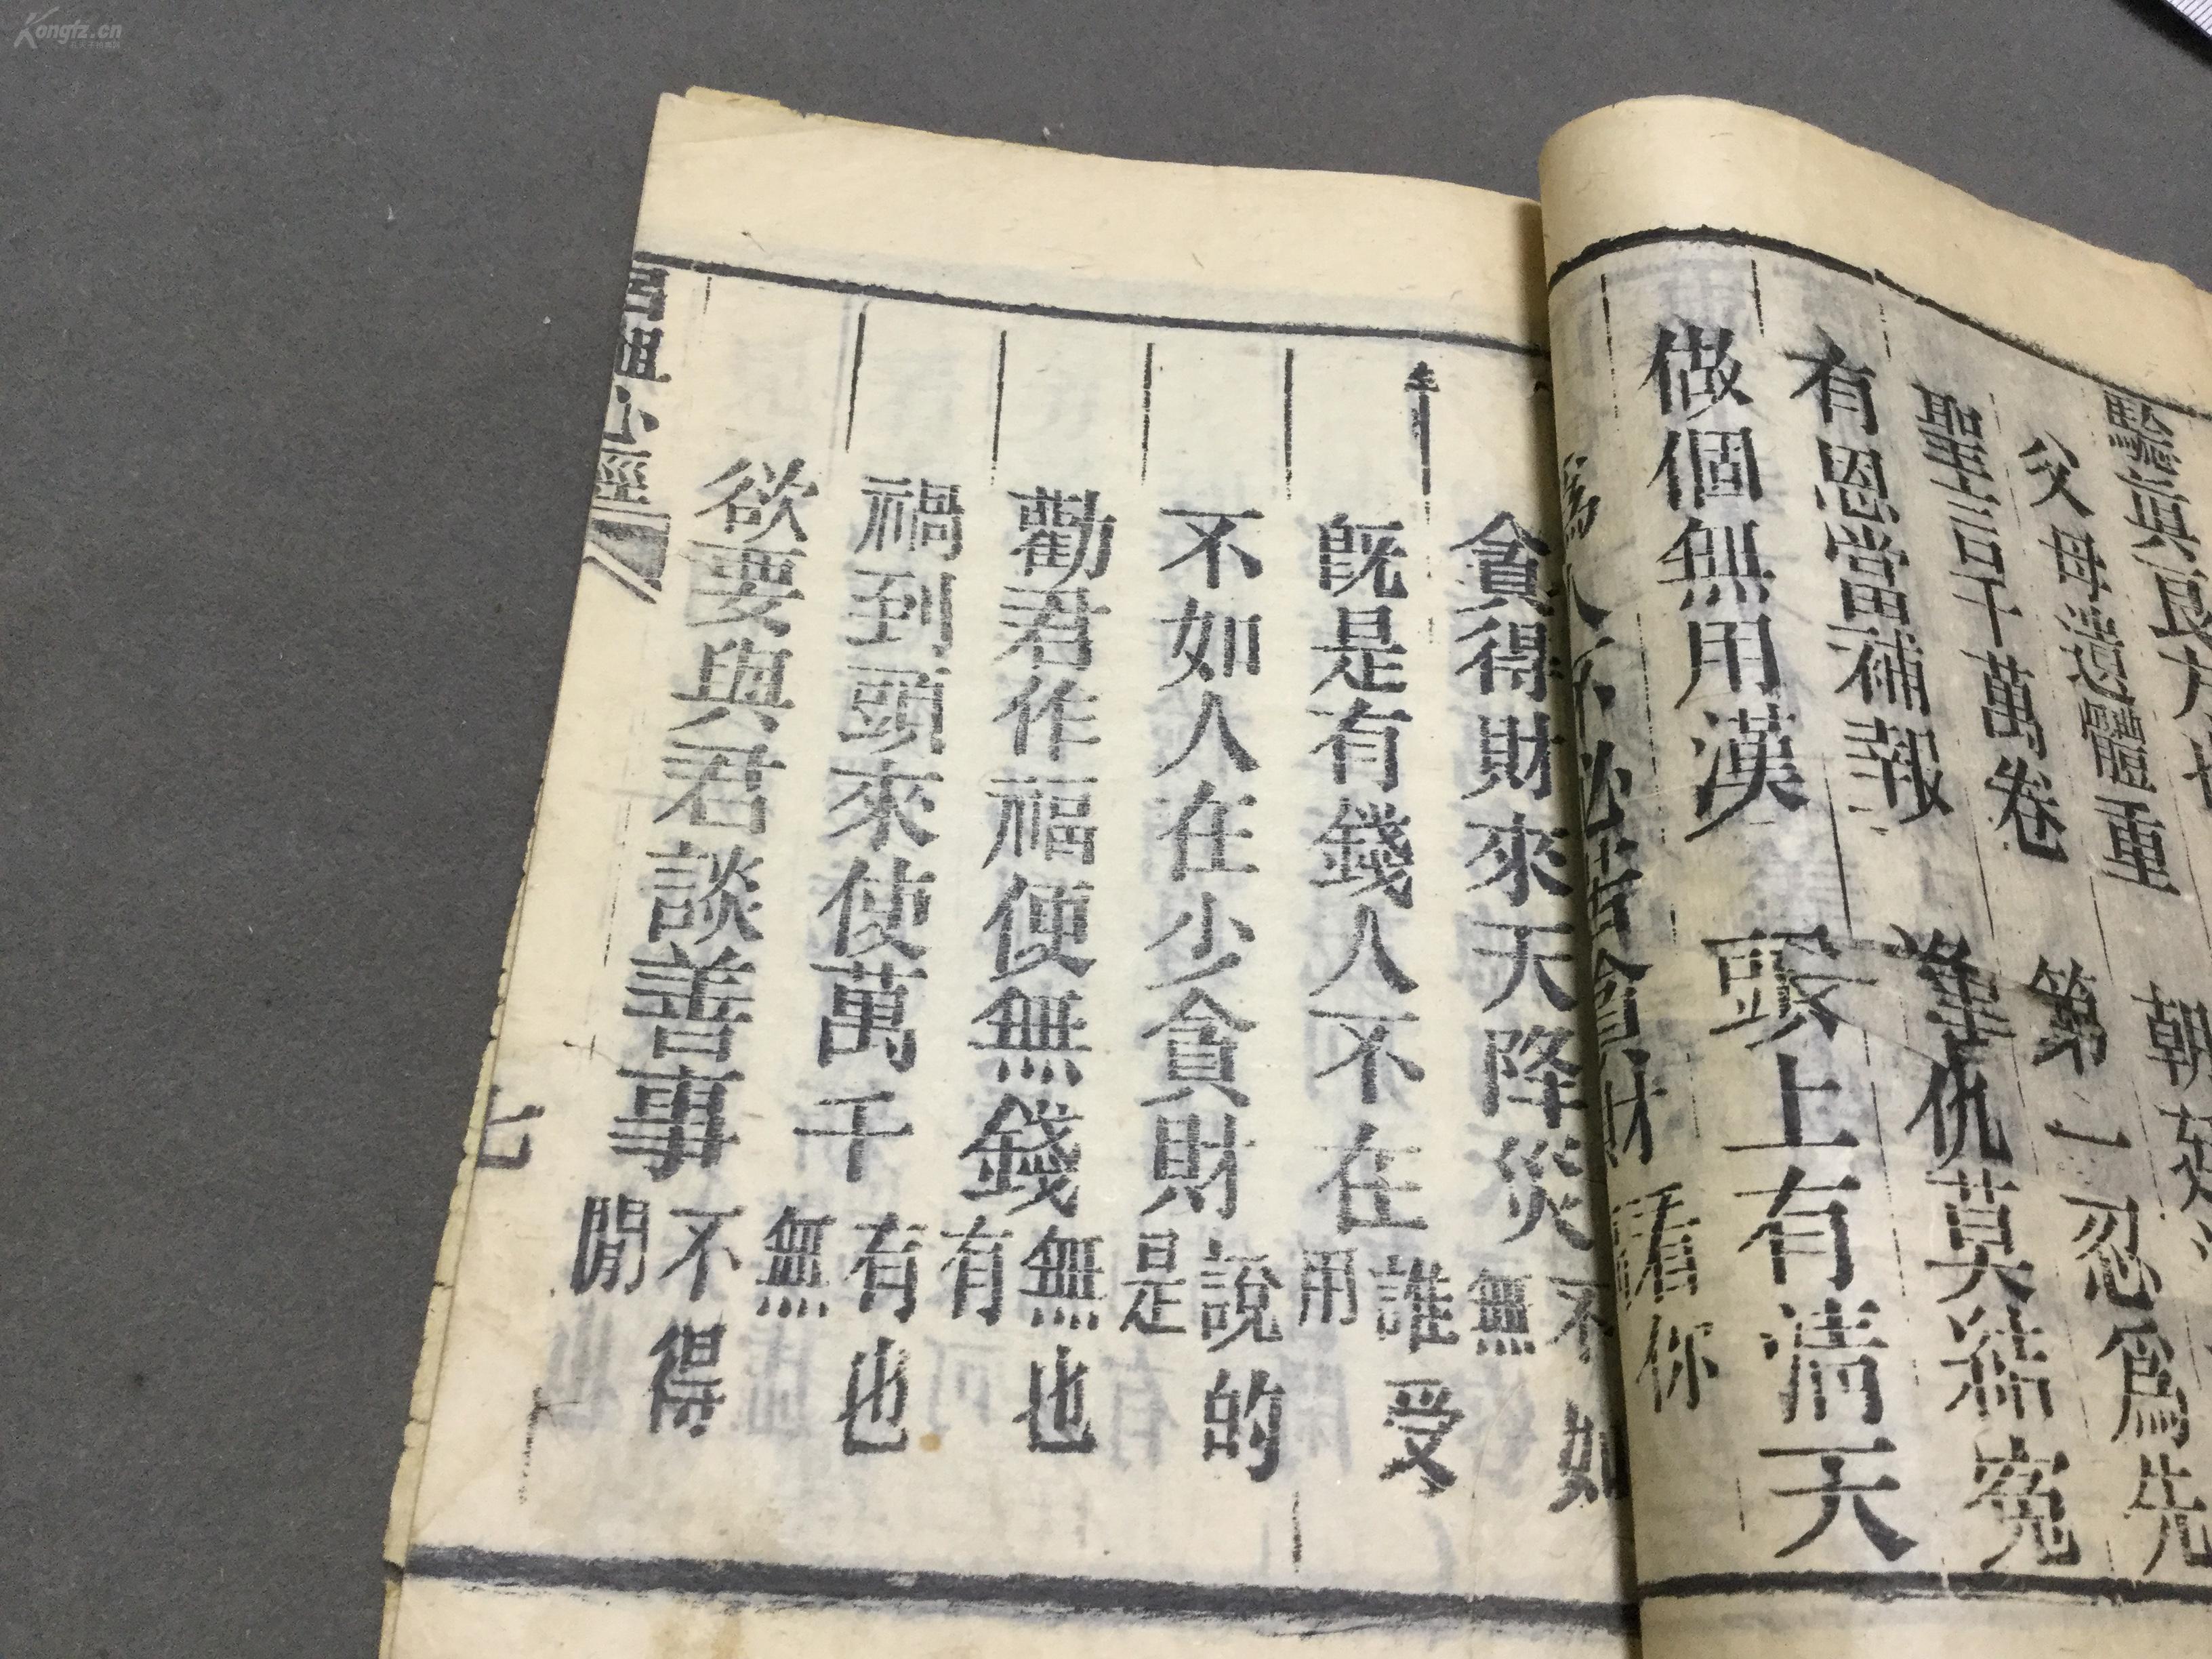 父母遺體重
朝
聖言千萬卷
第一忍爲先
有恩當補報
準仇莫結寃
做個無用漢
頭上有清天
看你
貪得財來天降災
不如
無
既是有錢人不在
誰受
用
不如人在少貪財
說的
是
勸君作福便無錢
無也
有
禍到頭來使萬千
有也
無
欲要與君談善事
不得
閒
心經
七
Kongfz.cn